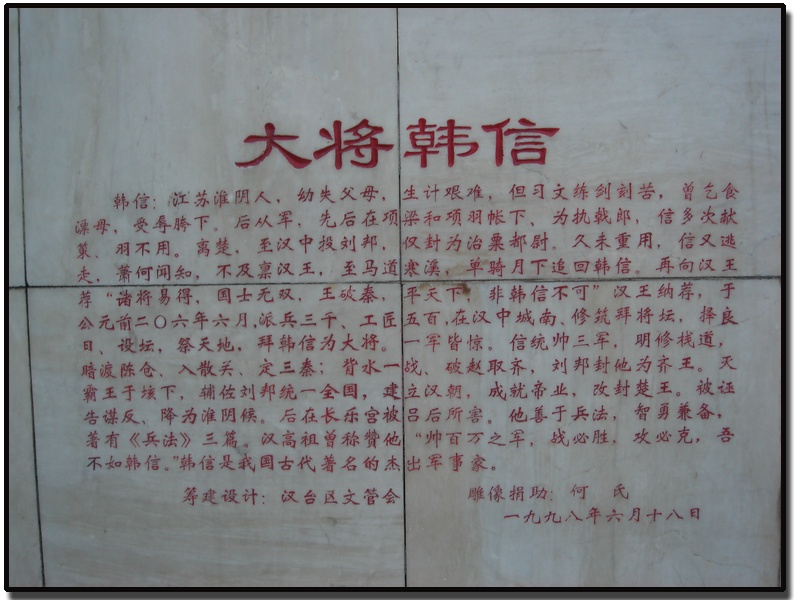 大将韩信
韩信：江苏淮阴人，幼失父母，生计艰难，但习文练剑刻苦，曾乞食
漂母，受辱胯下。后从军，先后在项梁和项羽帐下，为执戟郎，信多次献
策、羽不用。离楚，至汉中投刘邦，仅封为治粟都尉。久未重用，信又逃
走，萧何闻知，不及禀汉王，至马道寒溪，单骑月下追回韩信。再向汉王
荐“诸将易得，国士无双，王破秦，平天下，非韩信不可”汉王纳荐，于
公元前二〇六年六月，派兵三千、工匠五百，在汉中城南、修筑拜将坛，择良
日、设坛，祭天地，拜韩信为大将。一军皆惊。信统帅三军，明修栈道，
暗渡陈仓、入散关、定三秦；背水一战、破赵取齐，刘邦封他为齐王。灭
霸王于垓下，辅佐刘邦统一全国，建立汉朝，成就帝业，改封楚王。被诬
告谋反、降为淮阴候。后在长乐宫被吕后所害。他善于兵法，智勇兼备，
著有《兵法》三篇。汉高祖曾称赞他“帅百万之军，战必胜，攻必克，吾
不如韩信。”韩信是我国古代著名的杰出军事家。
筹建设计：汉台区文管会 雕像捐助：何 民
一九九八年六月十八日